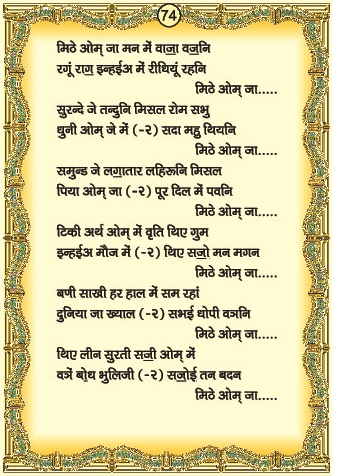 74
मिठे ओम् जा मन में वाॼा वॼनि
रगूं राॻ इन्हईअ में रीधियूं रहनि
मिठे ओम् जा.....
सुरन्दे जे तन्दुनि मिसल रोम सभु
धुनी ओम् जे में (-२) सदा महु थियनि
मिठे ओम् जा.....
समुन्ड जे लॻातार लहिरुनि मिसल
पिया ओम् जा (-२) पूर दिल में पवनि
मिठे ओम् जा.....
टिकी अर्थ ओम् में वृति थिए गुम
इन्हईअ मौज में (-२) थिए सॼो मन मगन
मिठे ओम् जा.....
बणी साखी हर हाल में सम रहां
दुनिया जा ख्याल (-२) सभई धोपी वञनि
मिठे ओम् जा.....
थिए लीन सुरती सॼी ओम् में
वञें ॿोध भुलिजी (-२) सॼोई तन बदन
मिठे ओम् जा.....